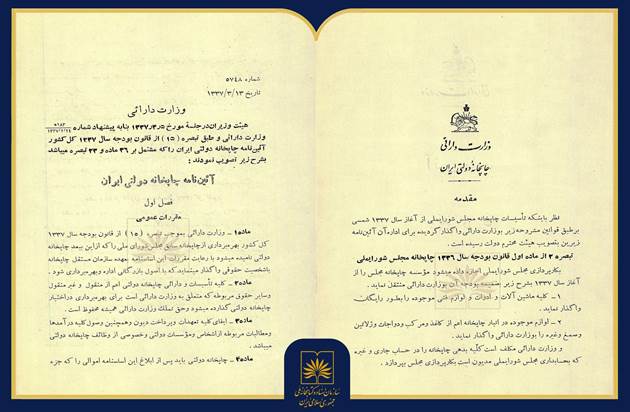 وزارت دارائی
چاپخانهٔ دولتی ایران
مقدمه
نظر باینکه تأسیسات چاپخانه مجلس شورایملی از آغاز سال ۱۳۳۷ شمسی
برطبق قوانین مشروحه زیر بوزارت دارائی واگذار گردیده برای اداره آن آئین‌نامه
زیرین بتصویب هیئت محترم دولت رسیده است.
تبصره ۲ از ماده اول قانون بودجه سال ۱۳۳۶ چاپخانه مجلس شورایملی
بکارپردازی مجلس شورایملی اجازه داده میشود مؤسسه چاپخانه مجلس را از
آغاز سال ۱۳۳۷ بشرح زیر ضمیمه بودجه آن بوزارت دارائی منتقل نماید.
۱ – کلیه ماشین آلات و ادوات و لوازم فنی موجوده را بطور رایگان
واگذار نماید.
۲ – لوازم موجوده در انبار چاپخانه اعم از کاغذ و مرکب و دواجات و ژلاتین
وصمغ وغیره را بوزارت دارائی واگذار نماید.
و وزارت دارائی مکلف است کلیه بدهی چاپخانه را در حساب جاری و غیره
که بحسابداری مجلس شورایملی مدیون است بکارپردازی مجلس بپردازد.
شماره ۵۷۴۸
تاریخ ۱۳۳۷/۳/۱۳
وزارت دارائی
هیئت وزیران در جلسهٔ مورخ ۱۳۳۷/۳/۵ بنا به پیشنهاد شماره
وزارت دارائی و طبق تبصره (۱۵) از قانون بودجه سال ۱۳۳۷ کل کشور
آئین‌نامه چاپخانه دولتی ایران را که مشتمل بر ۳۶ ماده و ۲۳ تبصره میباشد
بشرح زیر تصویب نمودند:
آئین‌نامه چاپخانه دولتی ایران
فصل اول
مقررات عمومی
ماده۱ – وزارت دارائی بموجب تبصره (۱۵) از قانون بودجه سال ۱۳۳۷
کل کشور بهره‌برداری از چاپخانه سابق مجلس شورای ملی را که از این ببعد چاپخانه
دولتی نامیده میشود با رعایت مقررات این اساسنامه بعهده سازمان مستقل چاپخانه
باشخصیت حقوقی واگذار مینماید که با اصول بازرگانی اداره و بهره‌برداری شود.
ماده۲ – کلیه تأسیسات و دارائی چاپخانه دولتی اعم از منقول و غیر منقول
وسایر حقوق مربوطه که متعلق به وزارت دارائی است برای بهره‌برداری دراختیار
چاپخانه دولتی گذارده میشود وحق تملک وزارت دارائی همیشه محفوظ است.
ماده۳ – ایفای کلیه تعهدات و پرداخت دیون و همچنین وصول کلیه درآمدها
ومطالبات مربوطه ازاشخاص ومؤسسات دولتی وخصوصی از وظائف چاپخانه دولتی
میباشد.
ماده۴ – چاپخانه دولتی باید پس از ابلاغ این اساسنامه اموالی را که جزء
سازمان اسناد و کتابخانه ملی
جمهوری اسلامی ایران